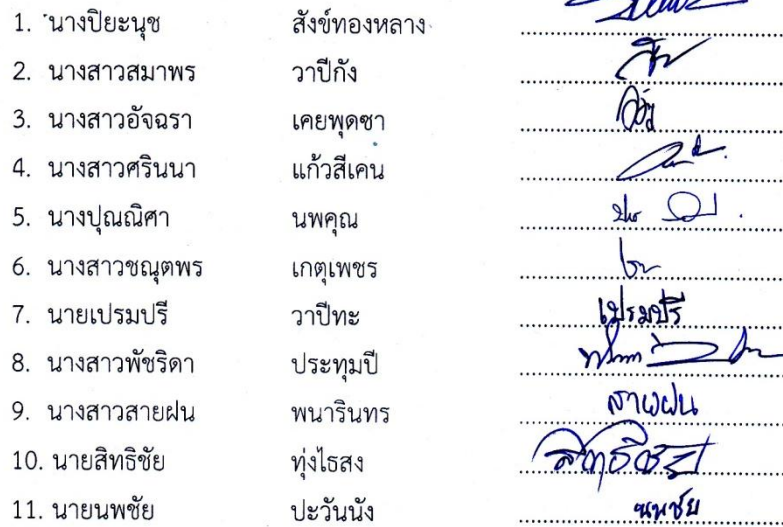 1. นางปิยะนุช สังข์ทองหลาง
2. นางสาวสมาพร วาปีกัง
3. นางสาวอัจฉรา เคยพุดซา
4. นางสาวศรินนา แก้วสีเคน
5. นางปุณณิศา นพคุณ
6. นางสาวชณุตพร เกตุเพชร
7. นายเปรมปรี วาปีทะ เปรมปรี
8. นางสาวพัชริดา ประทุมปี
9. นางสาวสายฝน พนารินทร สายฝน
10. นายสิทธิชัย ทุ่งไธสง สิทธิชัย
11. นายนพชัย ปะวันนัง นพชัย